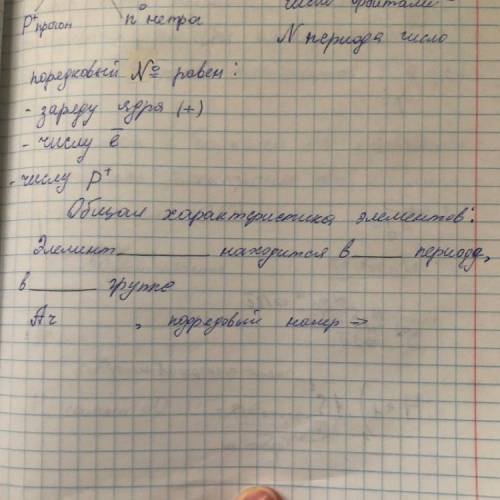 число орбиталей
P⁺ протон n⁰ нетра N периода число
порядковый № равен:
- заряду ядра (+)
- числу ē
- числу P⁺
Общая характеристика элементов:
Элемент_______ находится в____ периоде,
в______ группе
Ar , подрядовый намер ⇒